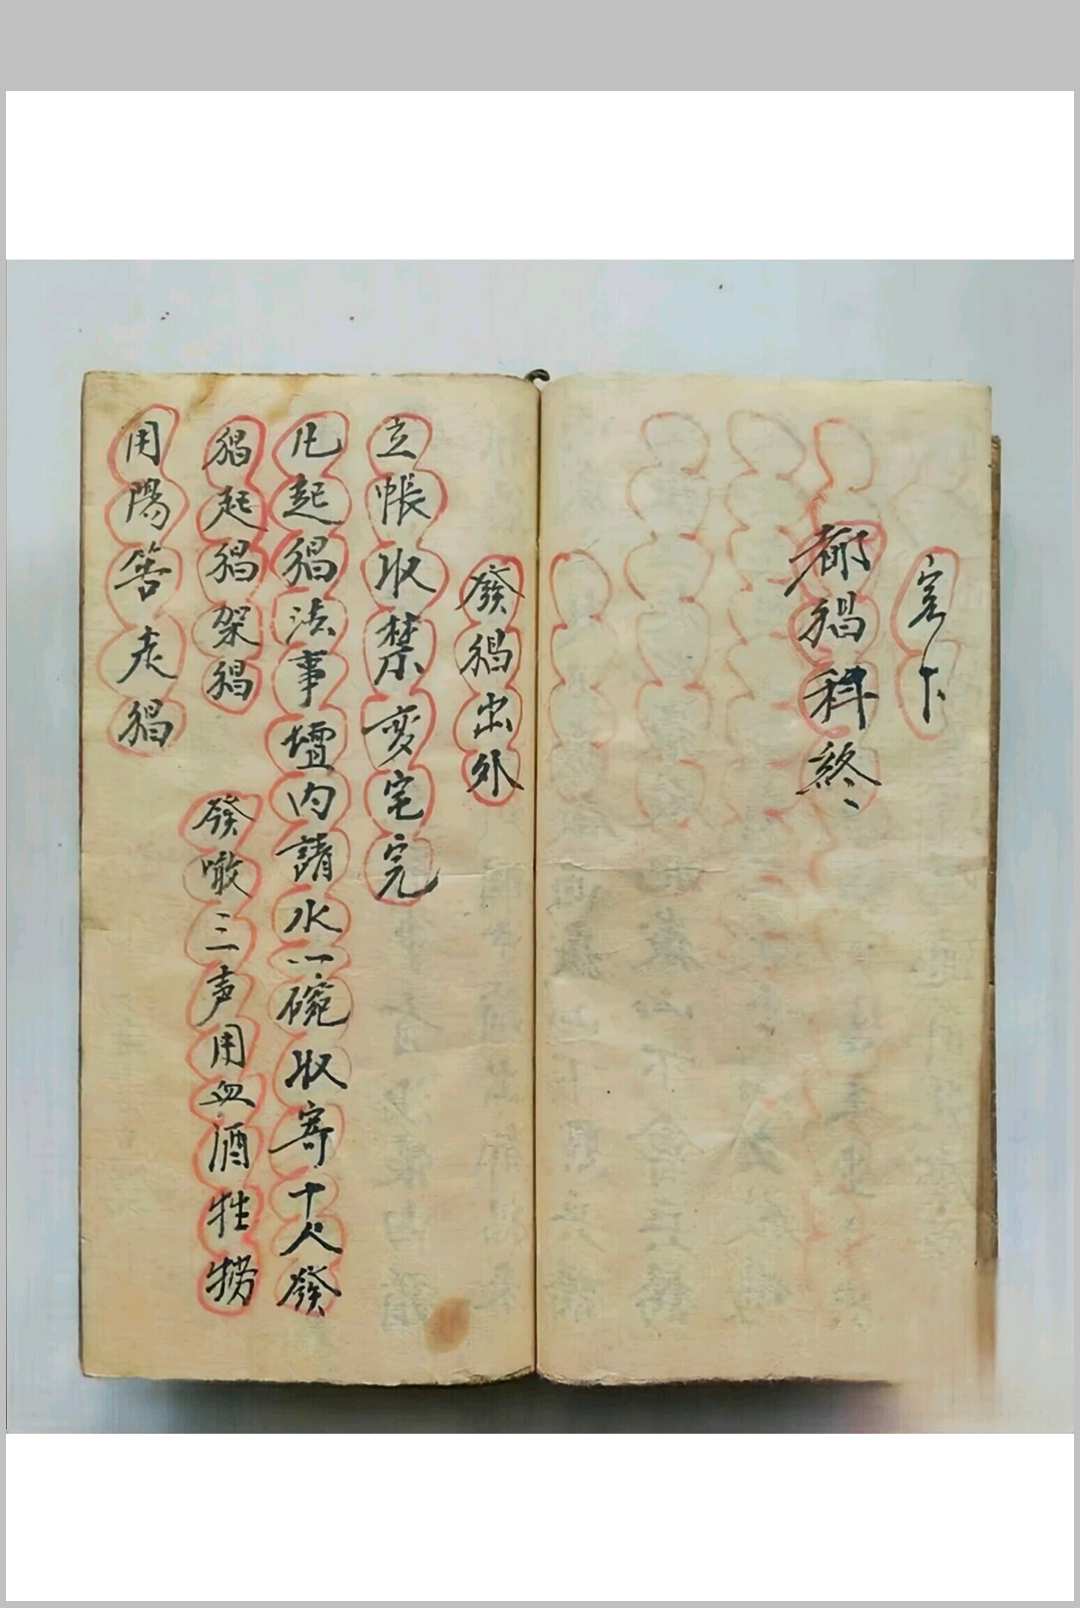 寔下
都猖科終
發猖出外
立帳收禁變宅完
凡起猖法事壇内請水一碗收寄十人發
猖起猖架猖
發噉三声用血酒牲
用陽筶走猖